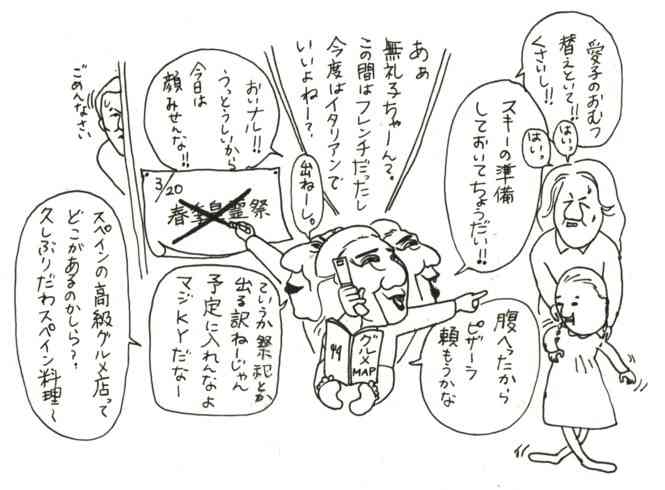 愛子のおむつ
替えといて!!
くさいし!!
はい。
はい。
スキーの準備
しておいてちょうだい!!
あぁ
無礼子ちゃーん?。
この間はフレンチだったし
今度はイタリアンで
いいよねー?。
おいナル!!
うっとうしいから
今日は
顔みせんな!!
ごめんなさい
3/20
春季皇霊祭
出ねーし。
ていうか祭祀とか
出る訳ねーじゃん
予定に入れんなよ
マジKYだなー
腹へったから
ピザーラ
頼もうかな
グルメ
MAP
スペインの高級グルメ店って
どこがあるのかしら?。
久しぶりだわスペイン料理〜